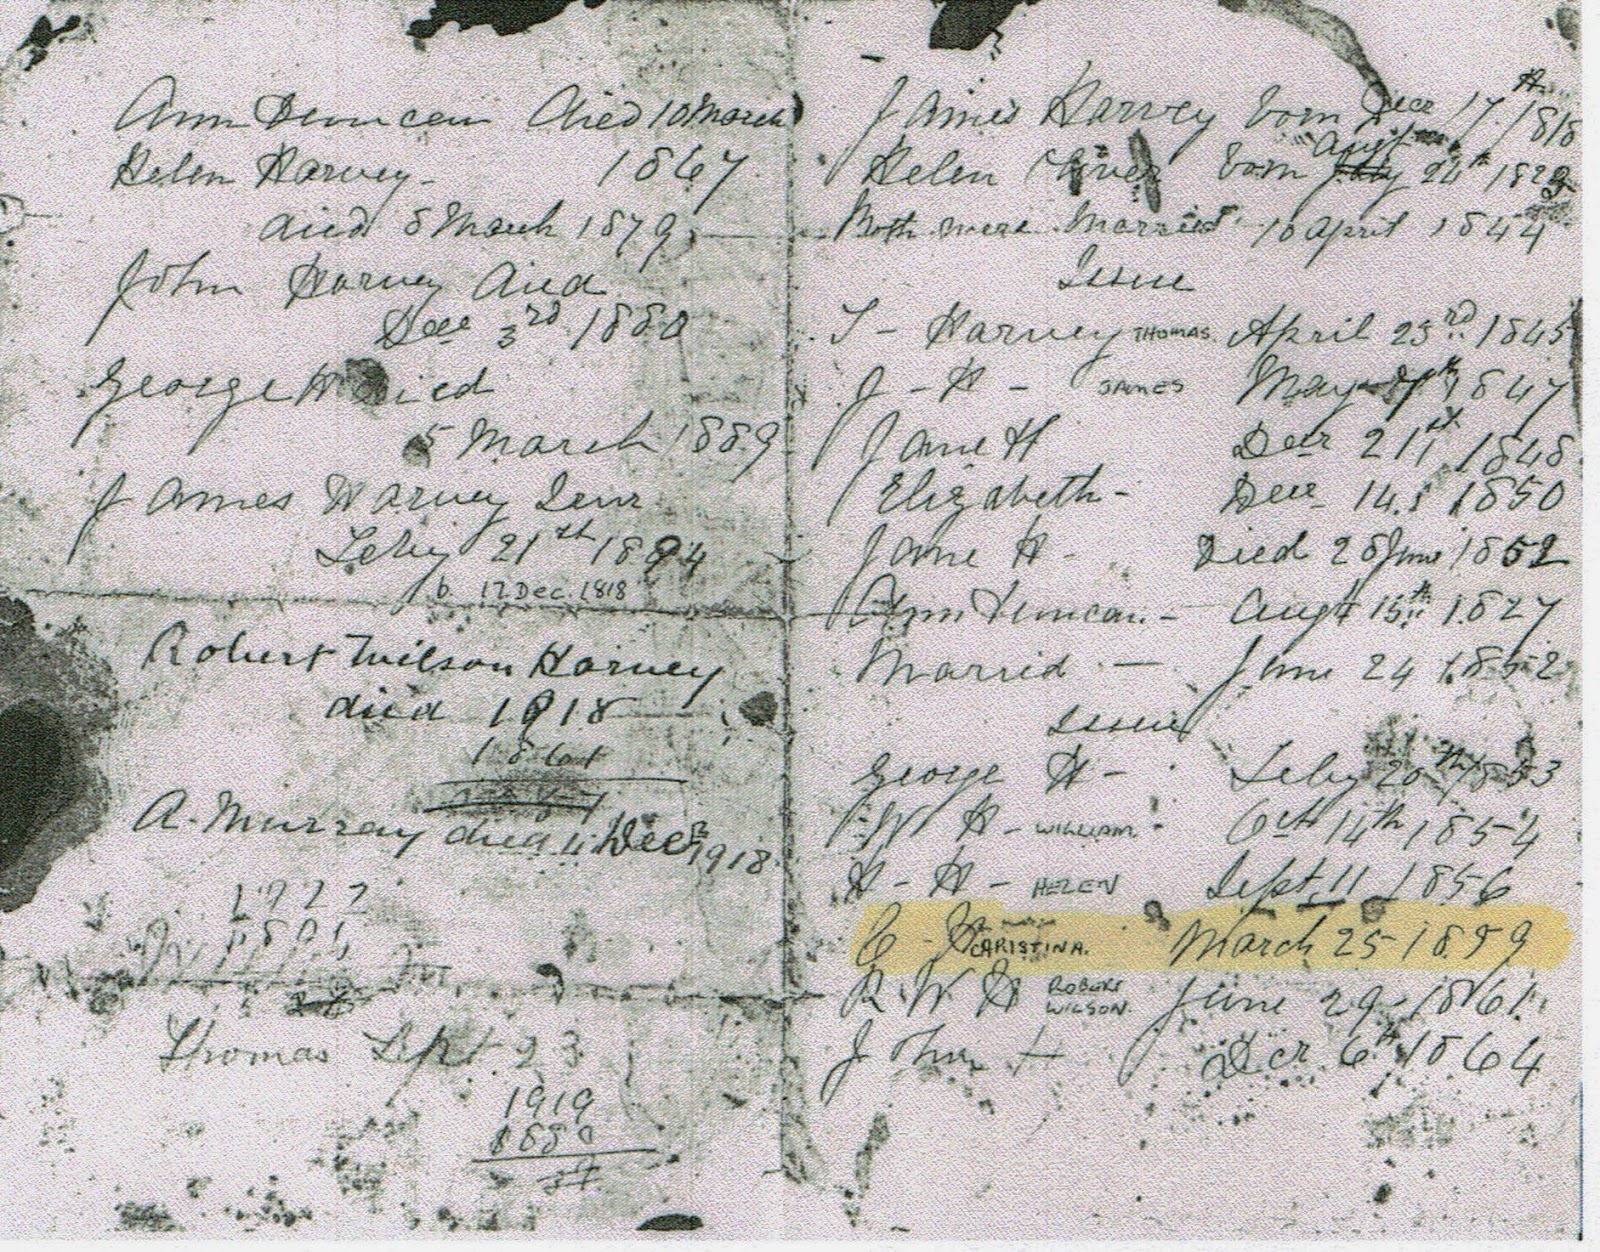 Ann Duncan died 10 March
Helen Harvey - 1867
died 8 March 1879
John Harvey died
Dec 3rd 1880
George H died
5 March 1889
James Harvey Senr
Feby 21st 1894
b. 17 Dec. 1818
Robert Wilson Harvey
died 1918
A. Murray died 4 Decr 1918
Thomas Sept 23
1919
James Harvey born Decr 17th 1818
Helen born Augt 24th
Both were Married 10 April 1844
Issue
T - Harvey THOMAS. April 23rd 1845
J - H - JAMES May 1847
Jane H Decr 21st 1848
Elizabeth - Decr 14. 1850
Jane H - Died 28 June 1852
Ann Duncan - Augt 15th 1827
Marrid - June 24 1852
Issue
George H - Feby 20th 1853
W H - WILLIAM. Oct 14th 1854
H - H - HELEN Sept 11 1856
C - H CHRISTINA. March 25 1859
R W H ROBERT WILSON. June 29 1861.
John H Decr 6th 1864